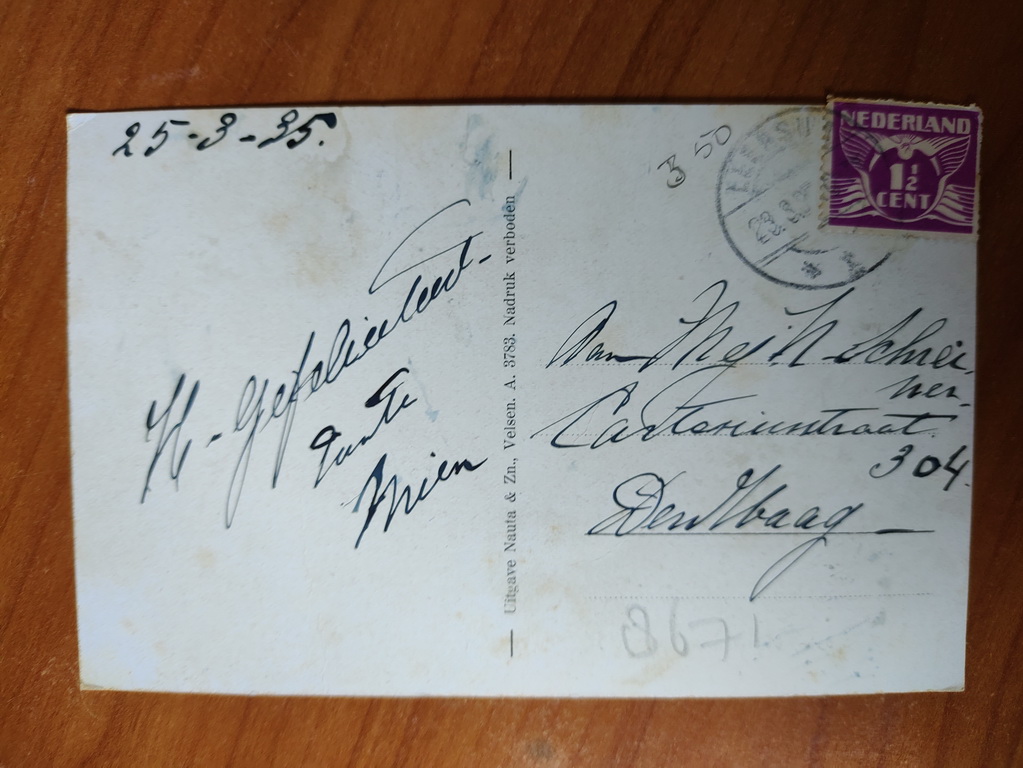 25-3-35.
H. Gefeliciteerd.
Tante
Mien
Uitgave Nauta & Zn., Velsen. A. 3783. Nadruk verboden
3 50
NEDERLAND
1½
CENT
Aan Mej. N. Schrei-
ver.
straat
304.
Den Haag
8671